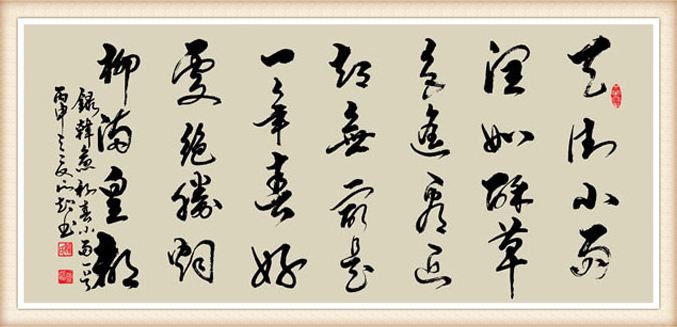 天街小雨
潤如酥草
色遙看近
却無最是
一年春好
處絕勝烟
柳滿皇都
錄韓愈初春小雨一首
丙申之夏書